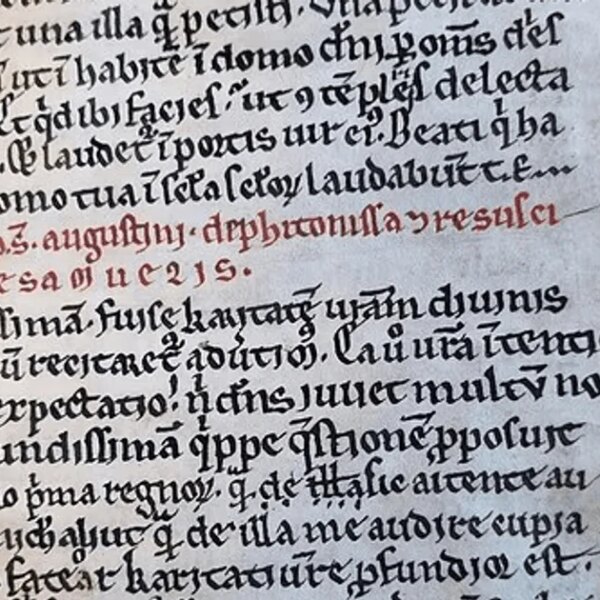 una illa q̄ petisti. Una pet
ut ī habitē ī domo dn̄i p̱ om̄s dies
Et qd ibi facies. ut ꝯtēplēs delecta
Q laudet ī portis uir eiꝰ. Beati qͥ ha
omo tua ī sc̄la sc̄loꝝ laudabūt t. E
s̄. augustini. de phitonissa ⁊ resusci
e samuelis.
simā. fuisse karitatē urām diuinis
ū recitaret᷑ aduertiꝰ. Ca uͦ urā ītenti
expectatio. ꝙ dn̄s iuuet multū no
undissimā qͥppe qstionē ꝓposuit
pͥma regnoꝝ. q̄ de illa sic attente au
de illa me audire cupia
fateor karitati ur̄e ꝓfundior est.